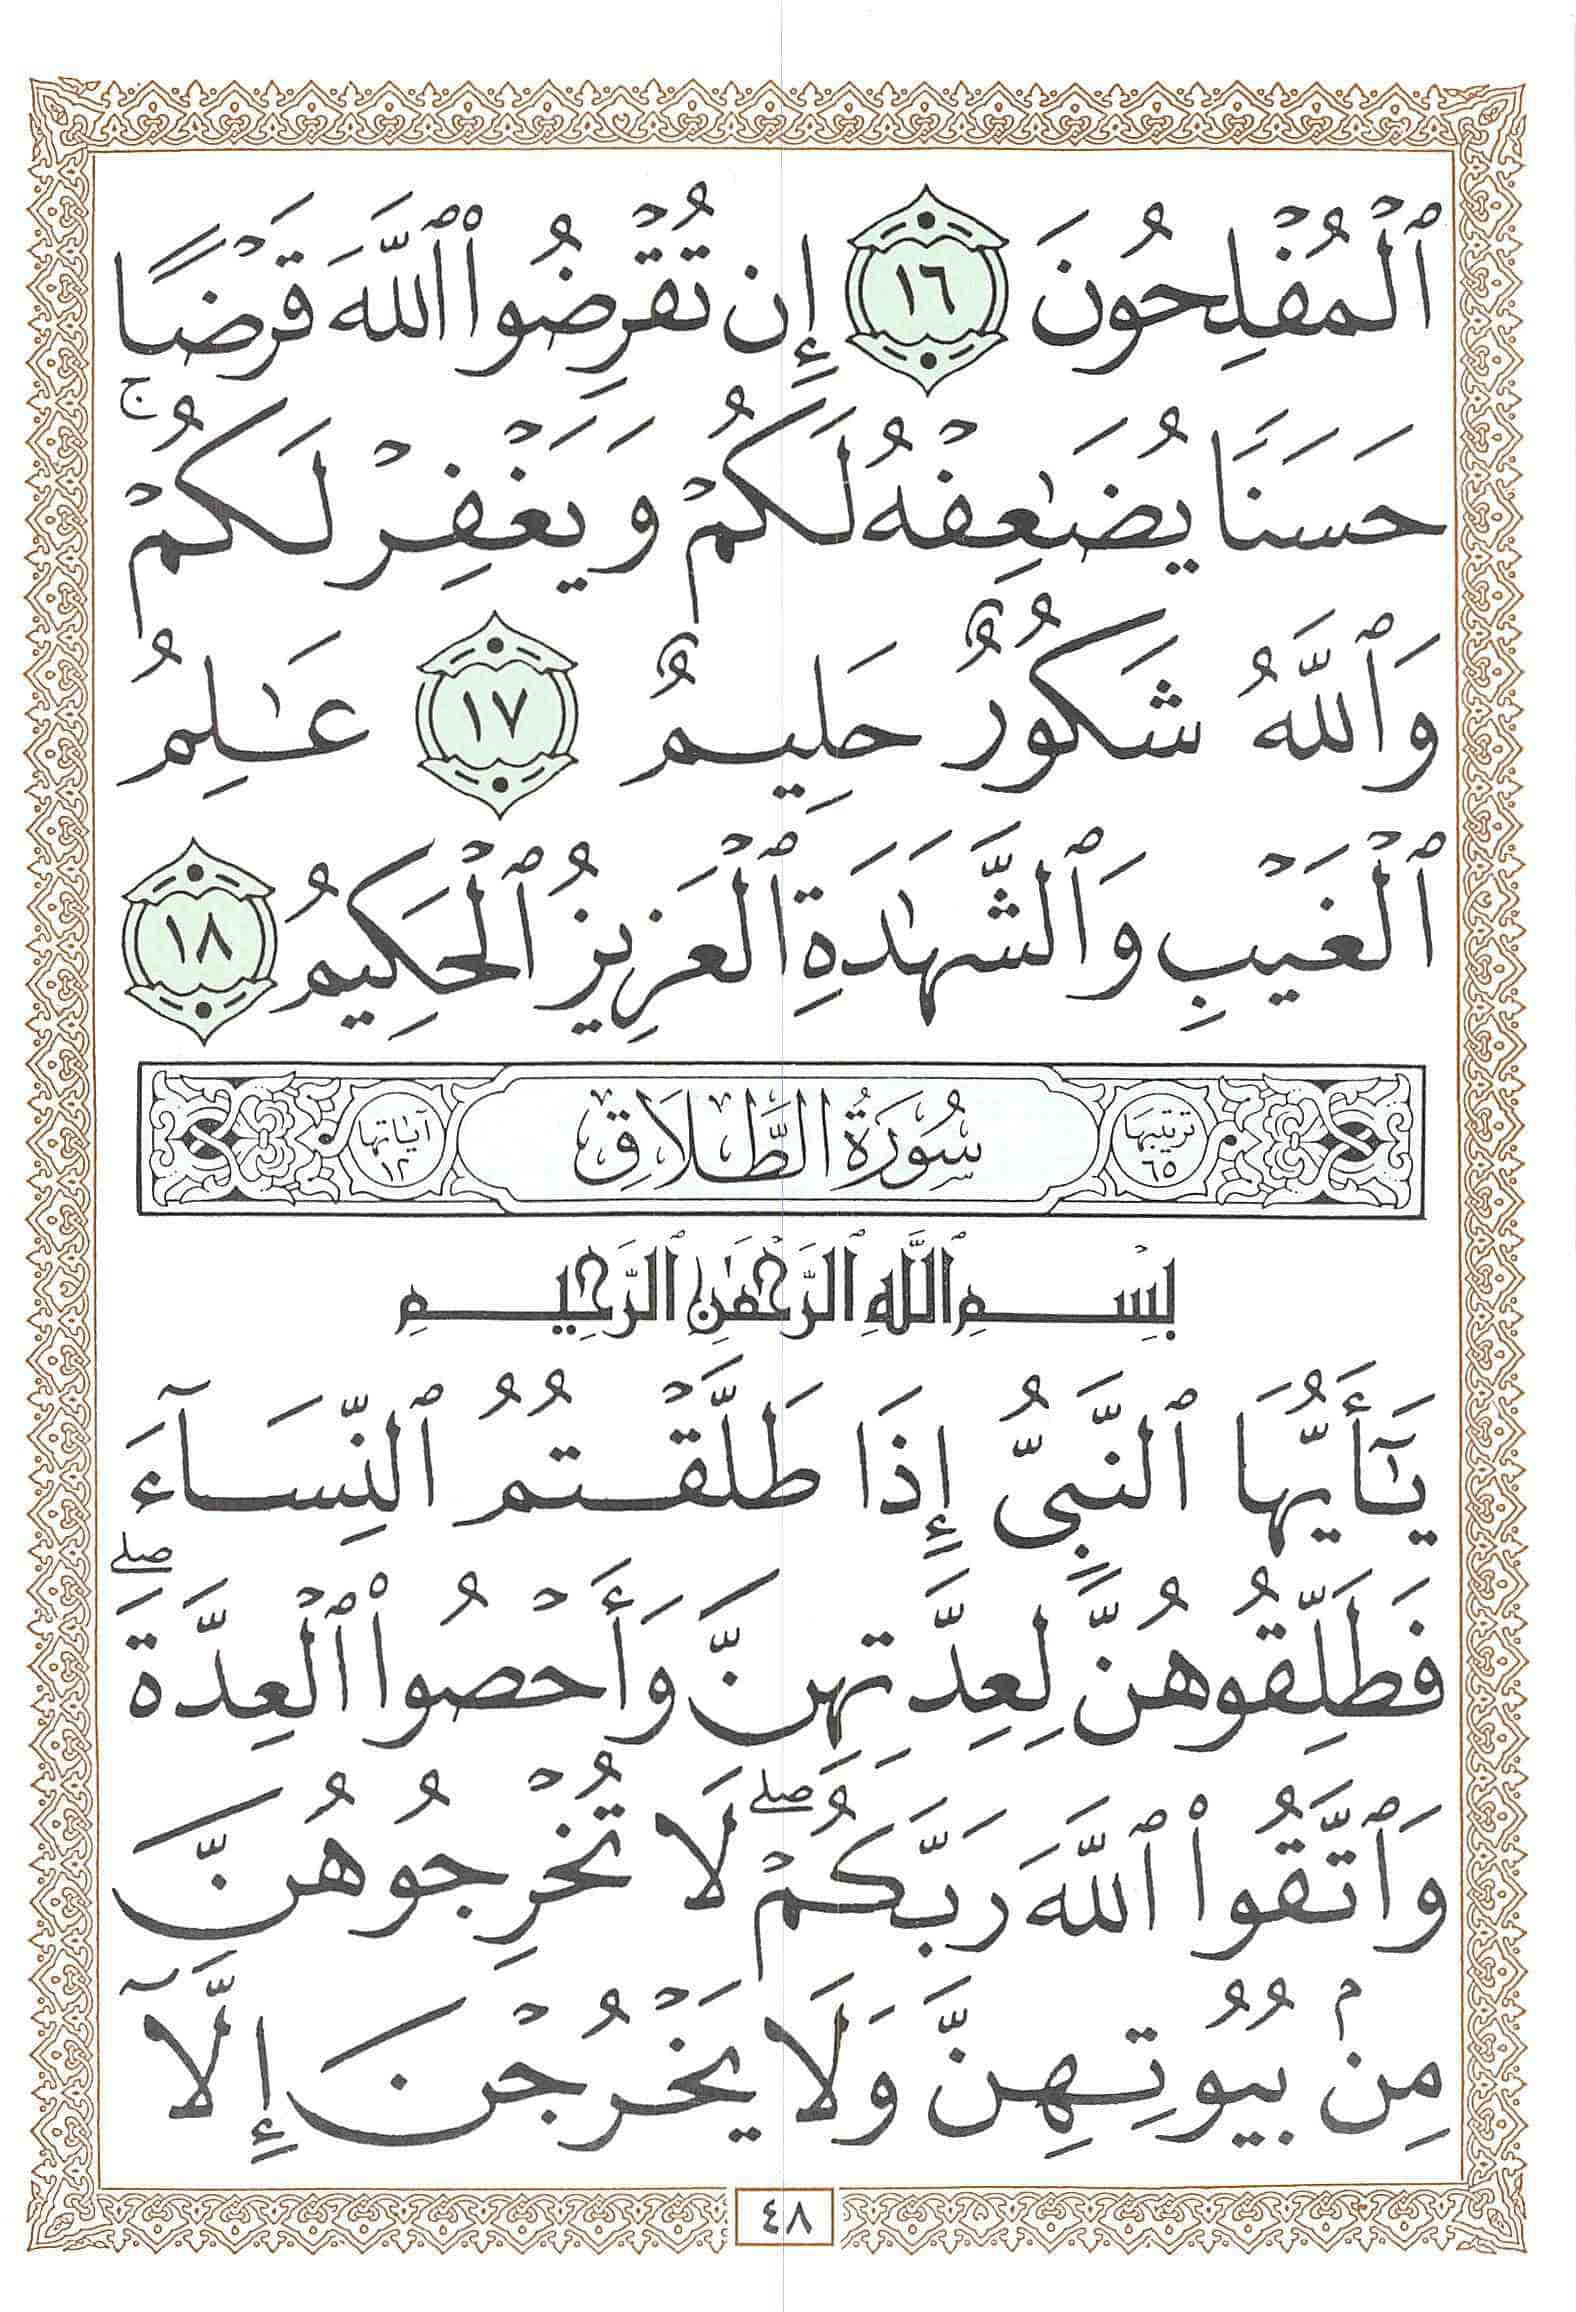 ٱلْمُفْلِحُونَ ١٦ إِن تُقْرِضُوا۟ ٱللَّهَ قَرْضًا
حَسَنًا يُضَـٰعِفْهُ لَكُمْ وَيَغْفِرْ لَكُمْ ۚ
وَٱللَّهُ شَكُورٌ حَلِيمٌ ١٧ عَـٰلِمُ
ٱلْغَيْبِ وَٱلشَّهَـٰدَةِ ٱلْعَزِيزُ ٱلْحَكِيمُ ١٨
ترتيبها ٦٥ سُورَةُ الطَّلَاقِ آياتها ١٢
بِسْمِ ٱللَّهِ ٱلرَّحْمَـٰنِ ٱلرَّحِيمِ
يَـٰٓأَيُّهَا ٱلنَّبِىُّ إِذَا طَلَّقْتُمُ ٱلنِّسَآءَ
فَطَلِّقُوهُنَّ لِعِدَّتِهِنَّ وَأَحْصُوا۟ ٱلْعِدَّةَ ۖ
وَٱتَّقُوا۟ ٱللَّهَ رَبَّكُمْ ۖ لَا تُخْرِجُوهُنَّ
مِنۢ بُيُوتِهِنَّ وَلَا يَخْرُجْنَ إِلَّآ
٤٨